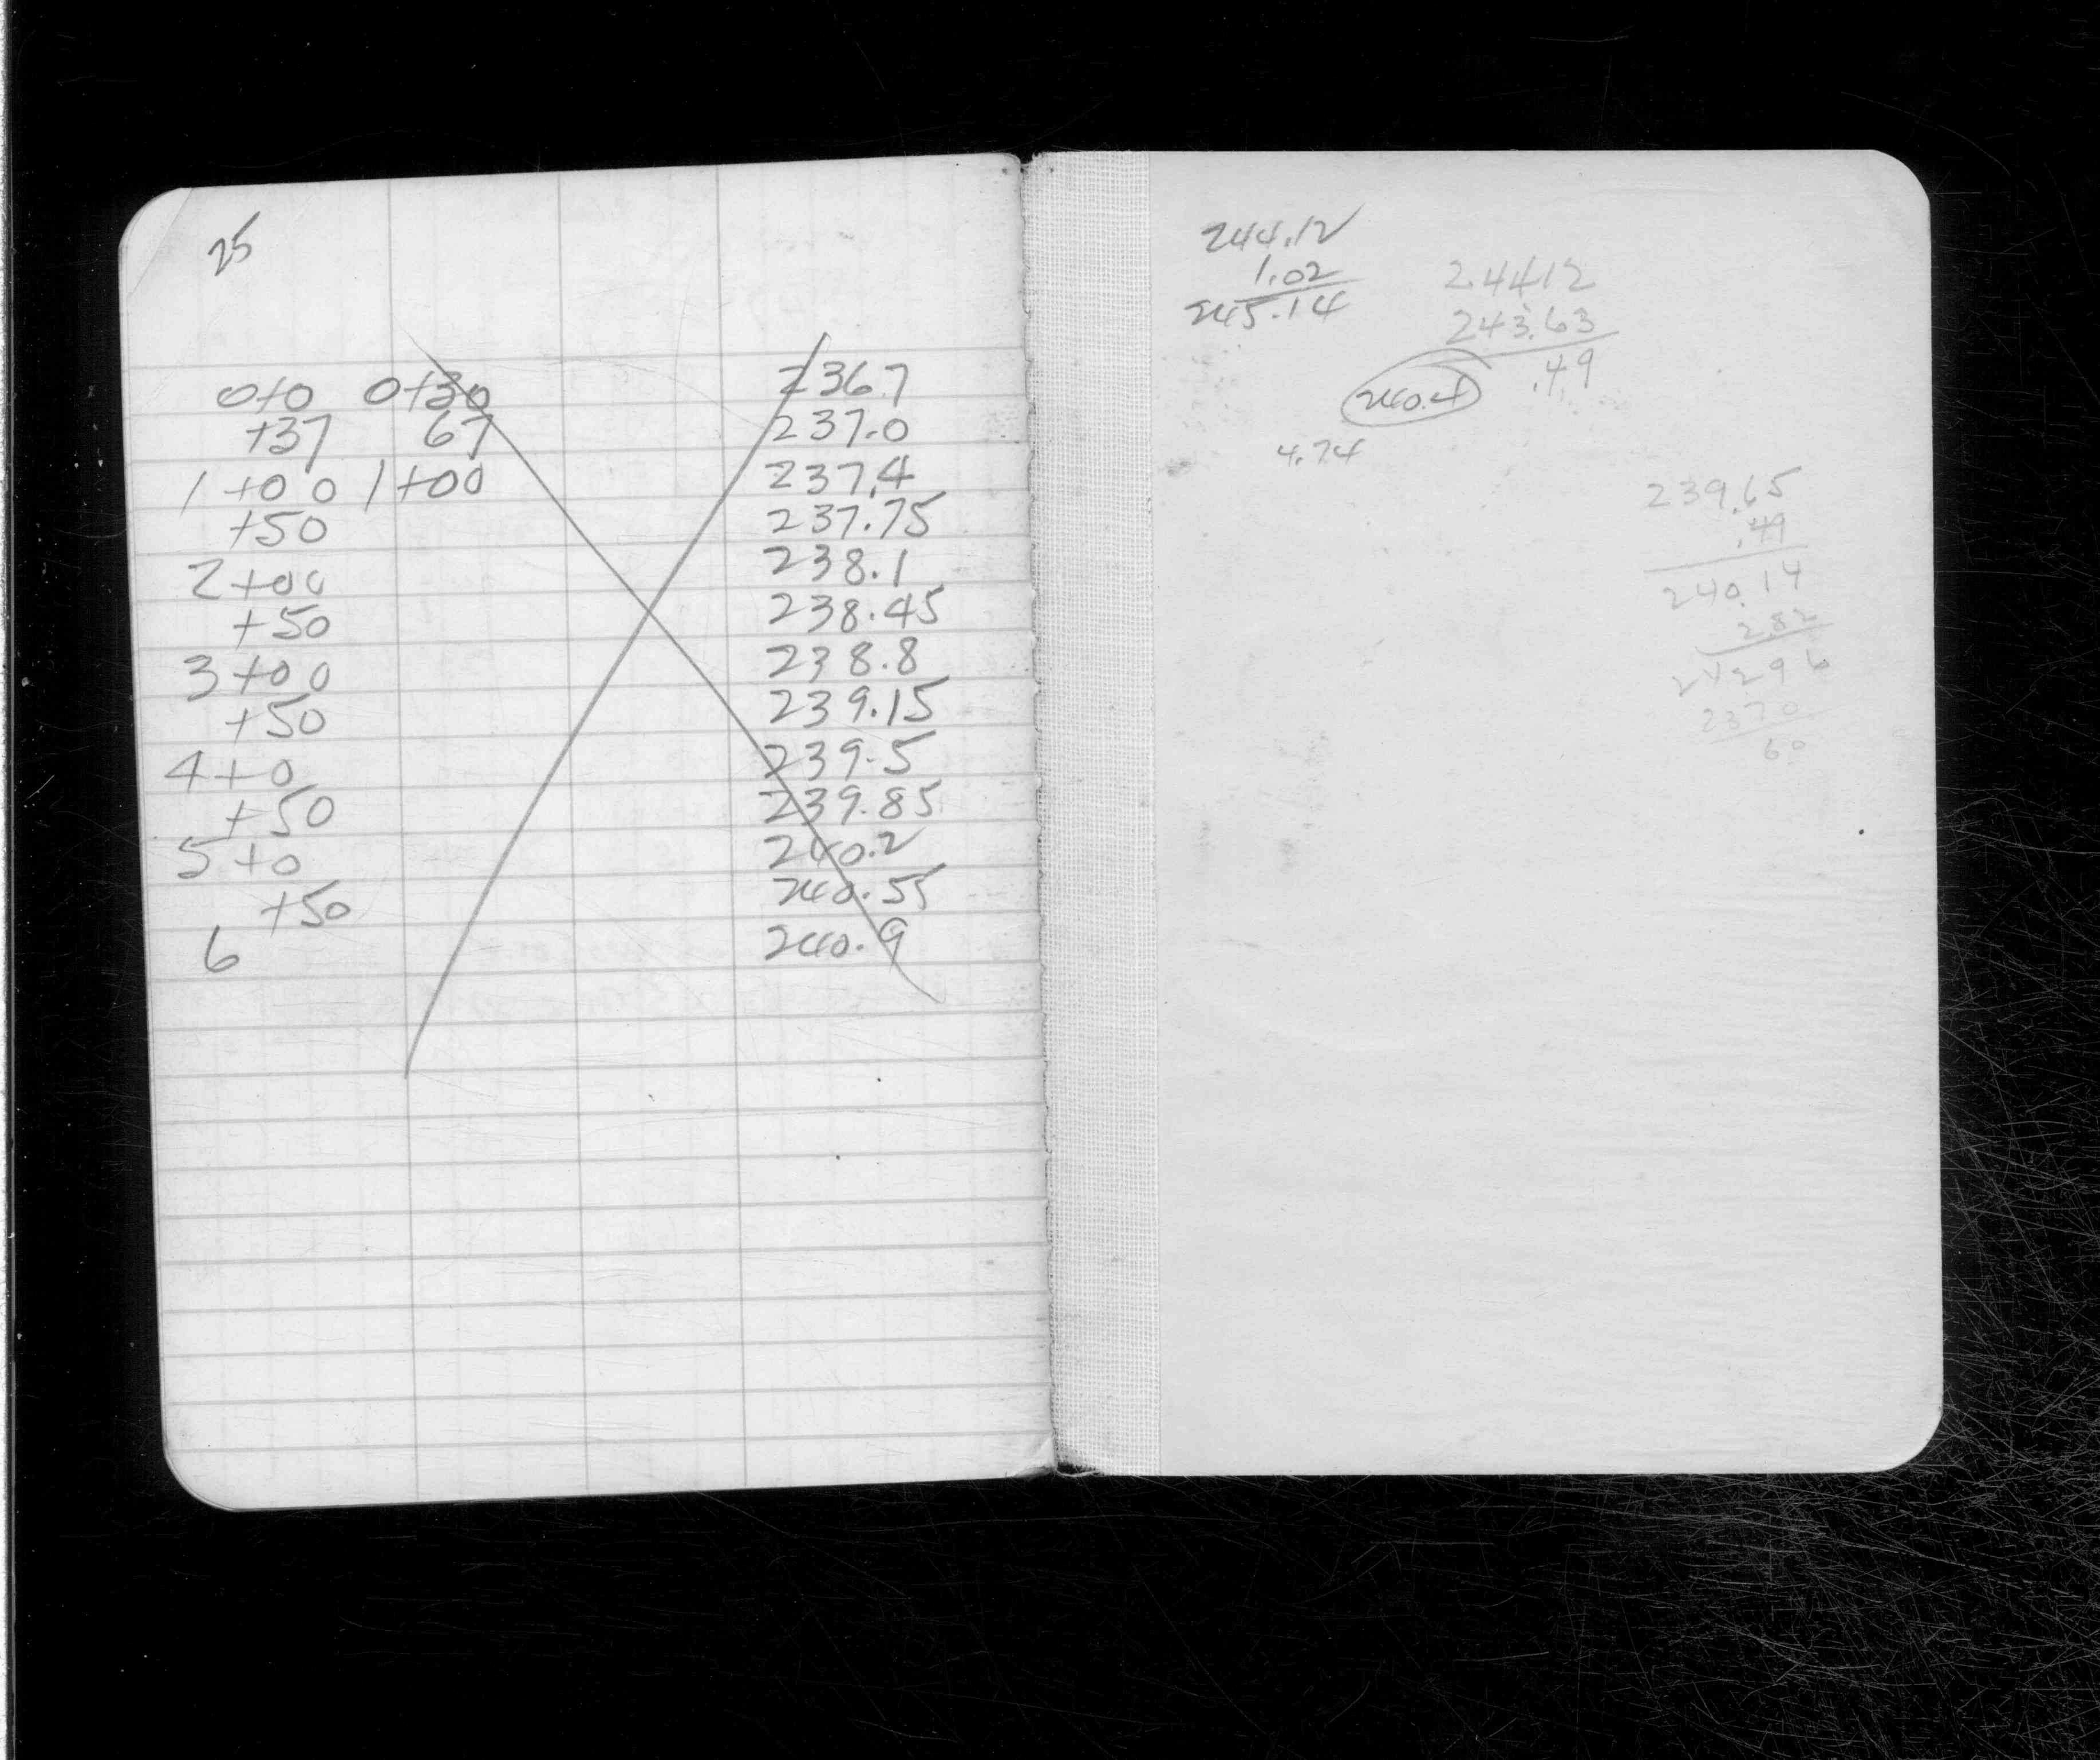 25
0+0 0+30 236.7
+37 67 237.0
1+00 1+00 237.4
+50 237.75
2+00 238.1
+50 238.45
3+00 238.8
+50 239.15
4+0 239.5
+50 239.85
5+0 240.2
+50 240.55
6 240.9
244.12
1.02
245.14
244.12
243.63
.49
240.4
4.74
239.65
.49
240.14
2.82
242.96
2370
60